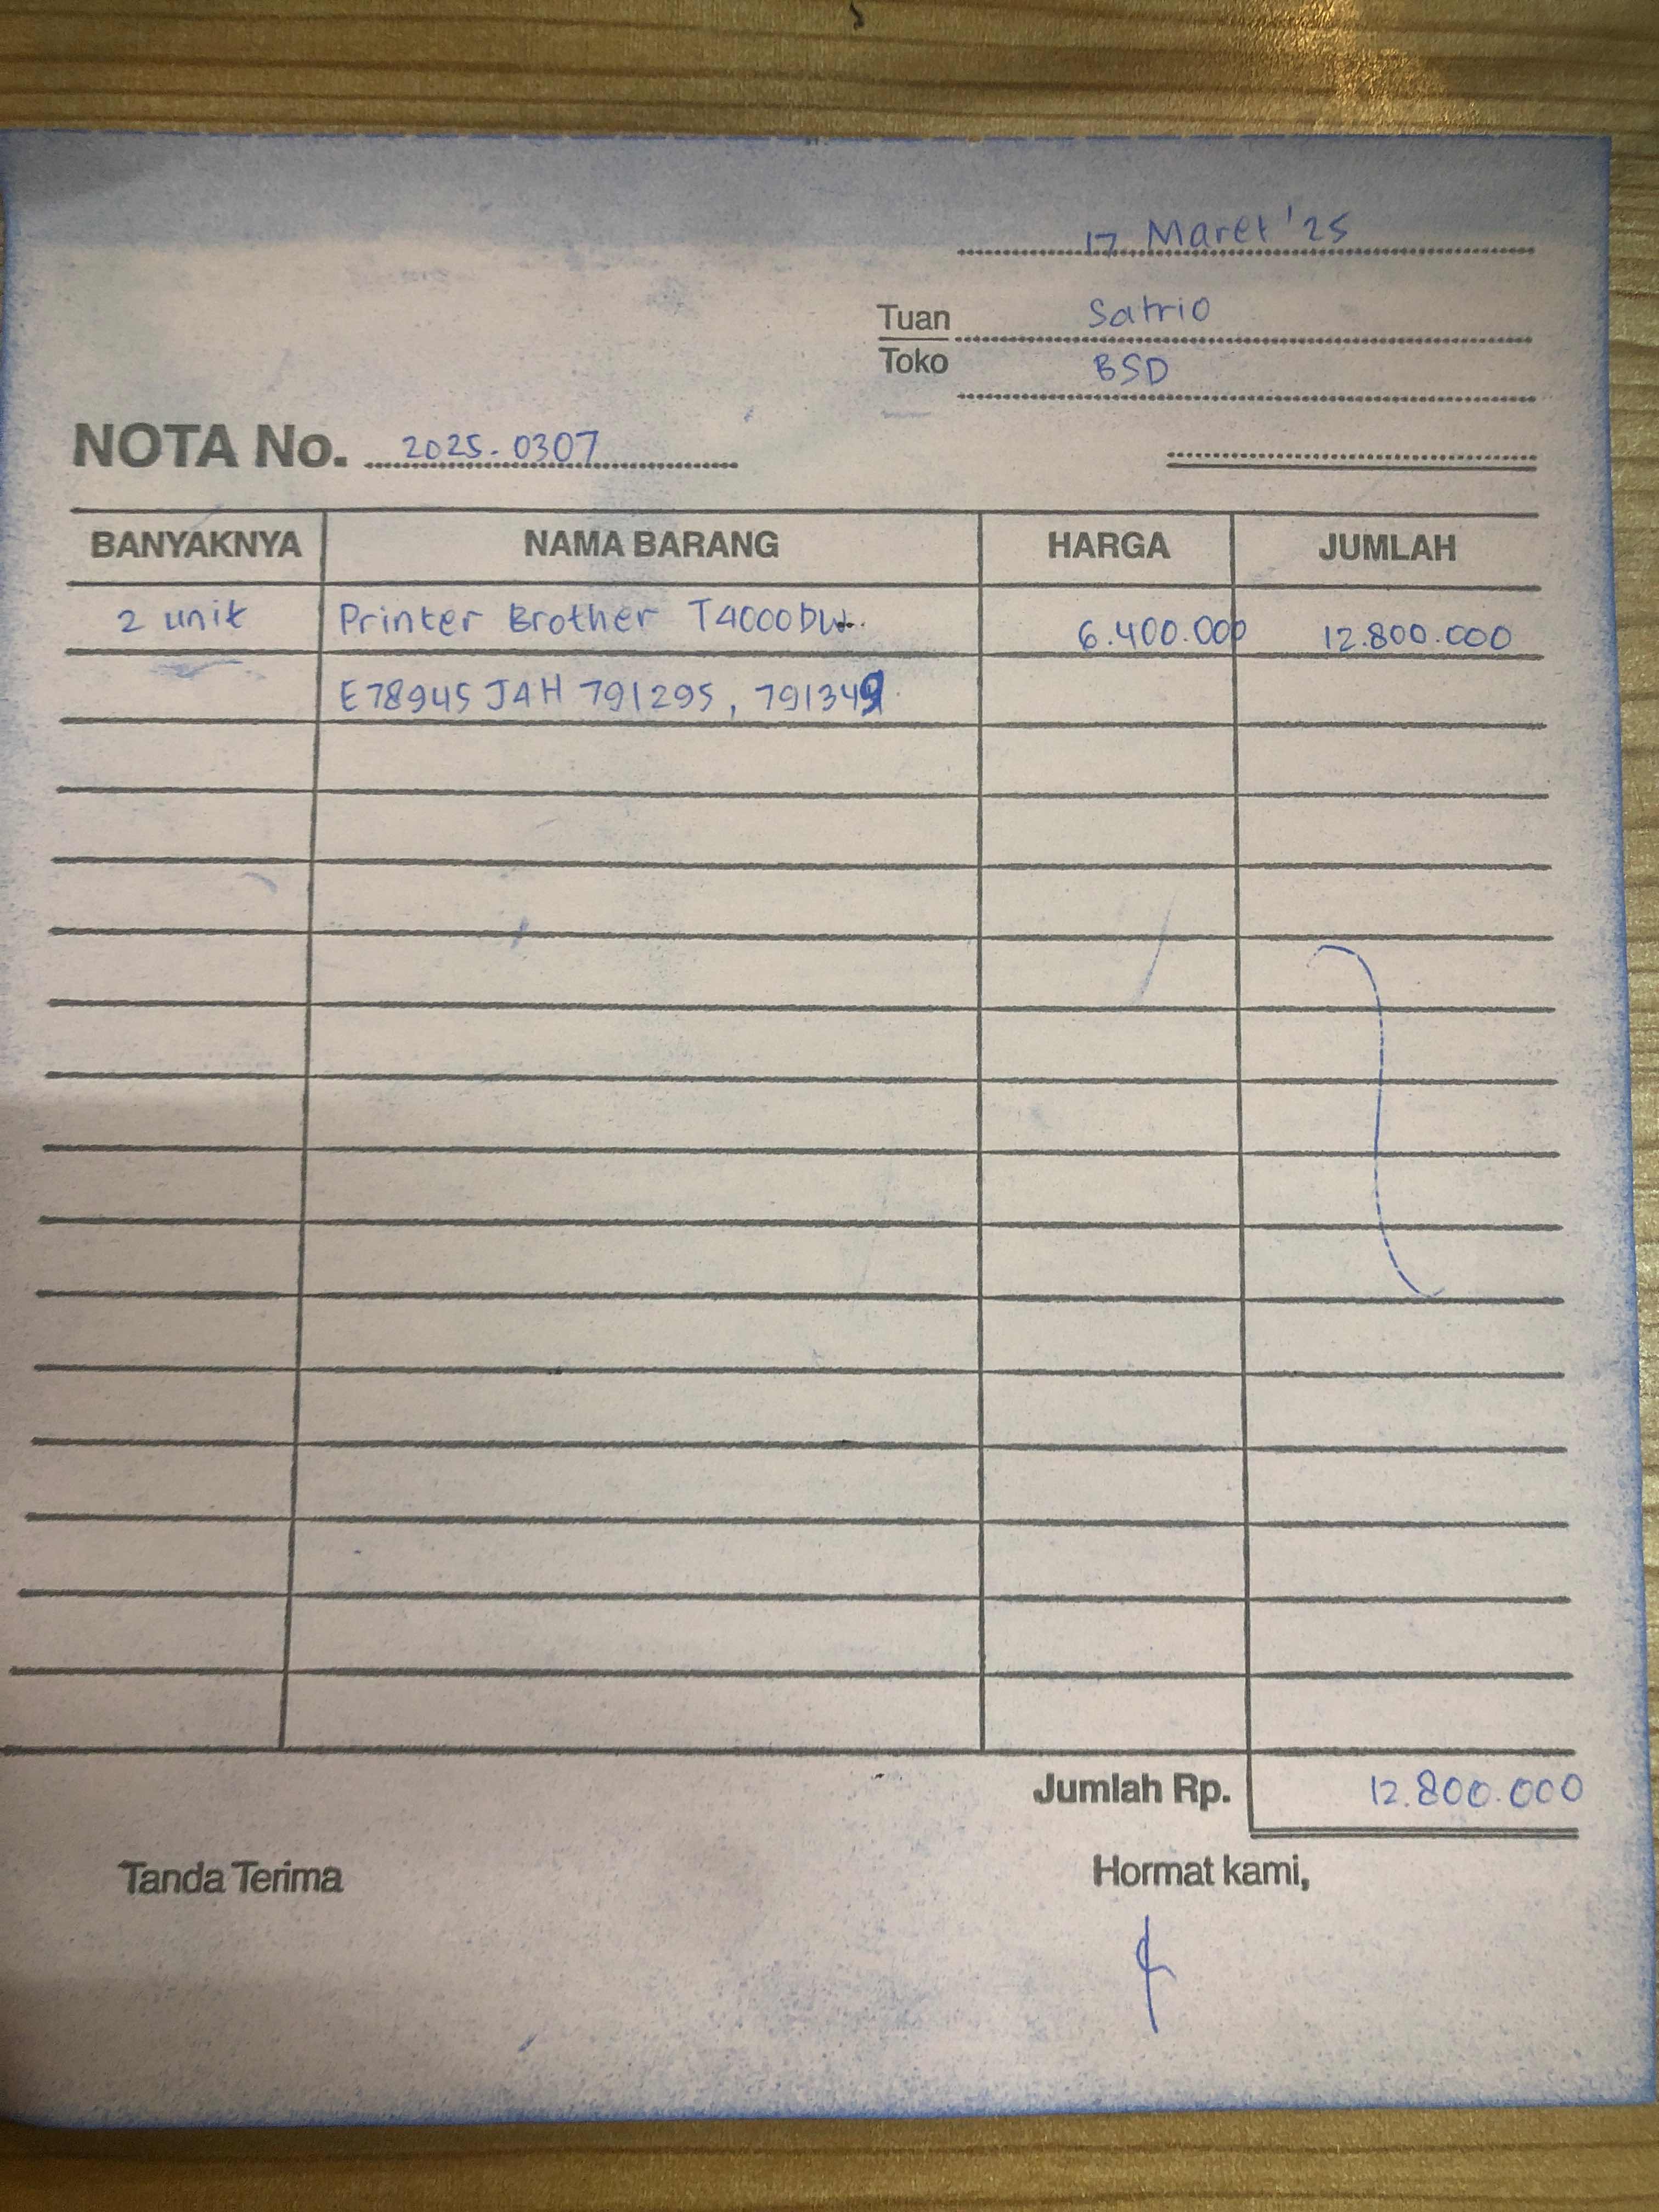 17 Maret '25
Tuan Satrio
Toko BSD
NOTA No. 2025.0307
BANYAKNYA NAMA BARANG HARGA JUMLAH
2 unit Printer Brother T4000DW 6.400.000 12.800.000
E78945 J4H 791295, 791349
Jumlah Rp. 12.800.000
Tanda Terima Hormat kami,